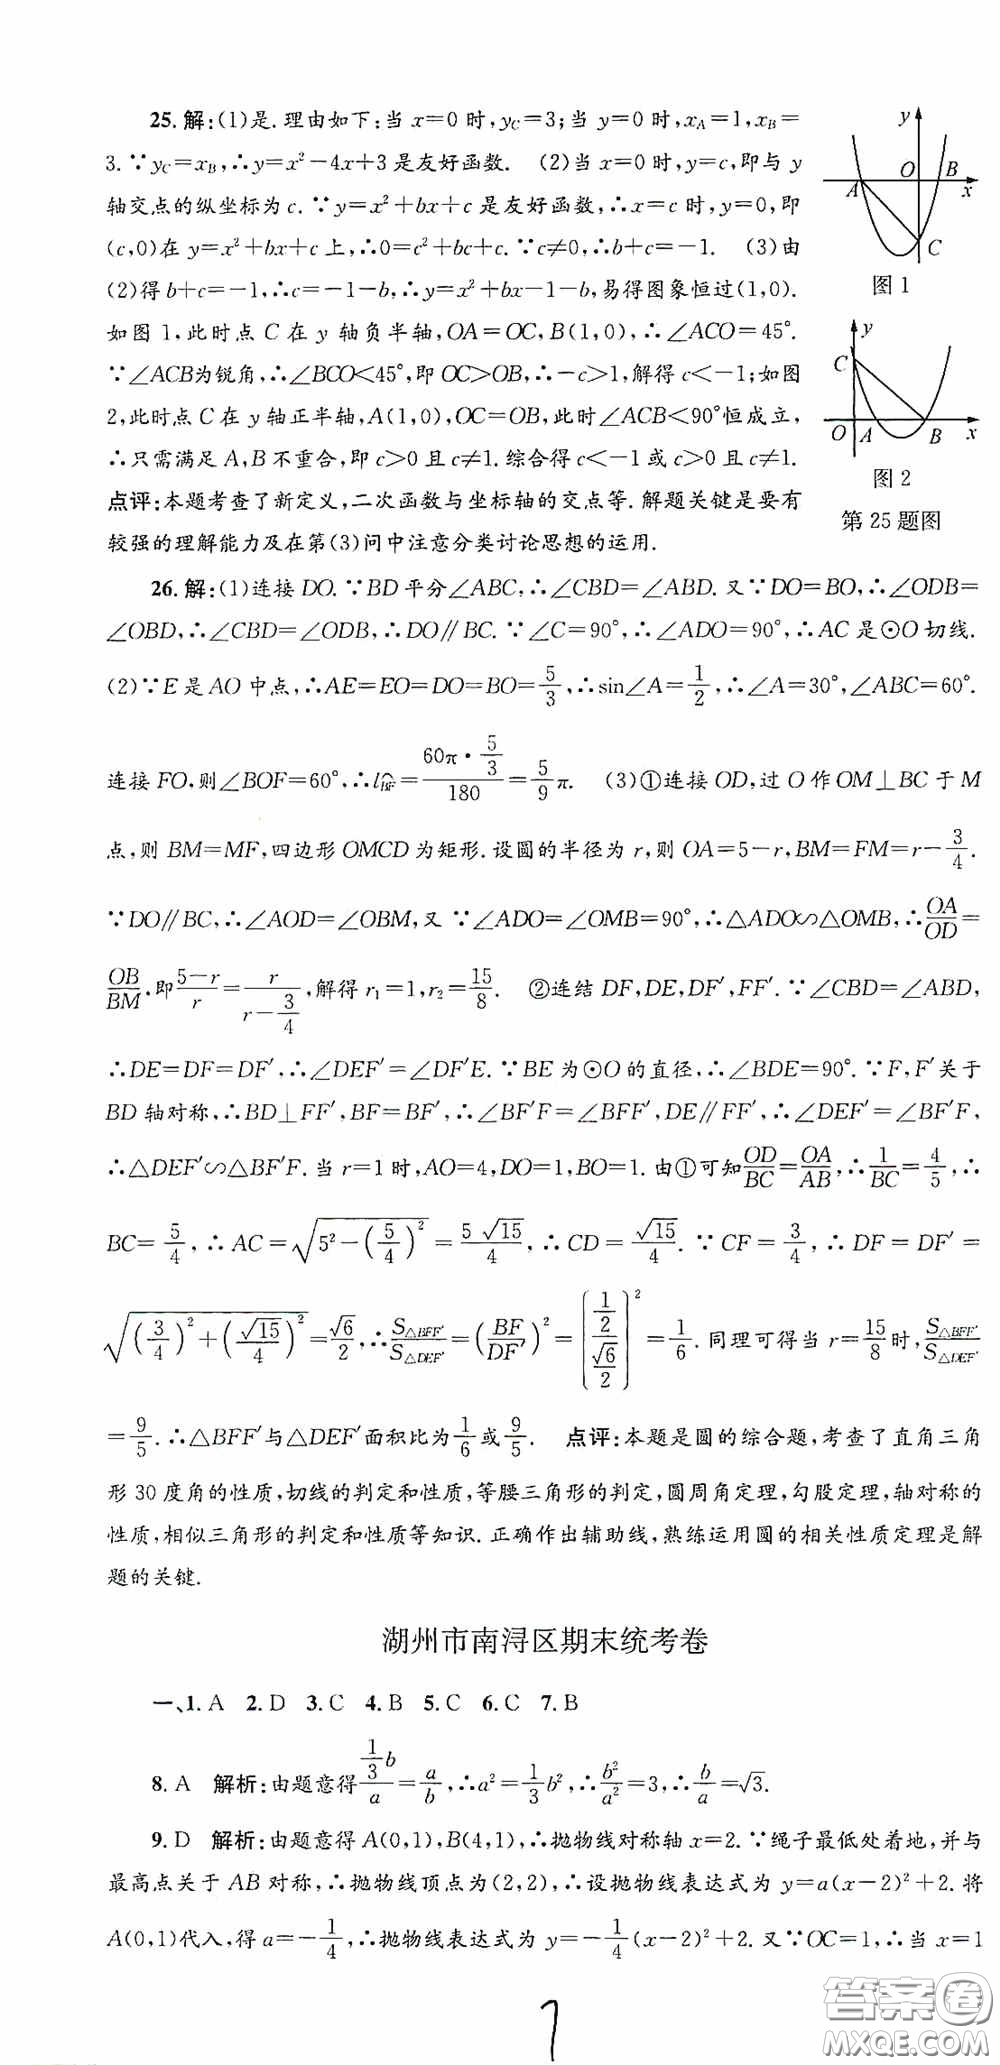 25. 解:(1)是. 理由如下:当 x=0 时, y_C=3;当 y=0 时, x_A=1, x_B=
3. ∵y_C=x_B, ∴y=x²-4x+3 是友好函数. (2)当 x=0 时, y=c, 即与 y
轴交点的纵坐标为 c. ∵y=x²+bx+c 是友好函数, ∴x=c 时, y=0, 即
(c,0)在 y=x²+bx+c 上, ∴0=c²+bc+c. ∵c≠0, ∴b+c=-1. (3)由
(2)得 b+c=-1, ∴c=-1-b, ∴y=x²+bx-1-b, 易得图象恒过(1,0).
如图 1, 此时点 C 在 y 轴负半轴, OA=OC, B(1,0), ∴∠ACO=45°.
∵∠ACB为锐角, ∴∠BCO<45°, 即 OC>OB, ∴-c>1, 解得 c<-1;如图
2, 此时点 C 在 y 轴正半轴, A(1,0), OC=OB, 此时∠ACB<90°恒成立,
∴只需满足 A,B 不重合, 即 c>0 且 c≠1. 综合得 c<-1 或 c>0 且 c≠1.
点评:本题考查了新定义, 二次函数与坐标轴的交点等. 解题关键是要有
较强的理解能力及在第(3)问中注意分类讨论思想的运用.
y
O B
A x
C
图 1
y
C
O A B x
图 2
第 25 题图
26. 解:(1)连接 DO. ∵BD 平分∠ABC, ∴∠CBD=∠ABD. 又∵DO=BO, ∴∠ODB=
∠OBD, ∴∠CBD=∠ODB, ∴DO∥BC. ∵∠C=90°, ∴∠ADO=90°, ∴AC 是⊙O 切线.
(2)∵E 是 AO 中点, ∴AE=EO=DO=BO=5/3, ∴sin∠A=1/2, ∴∠A=30°, ∠ABC=60°.
连接 FO, 则∠BOF=60°, ∴l_BF⌒=(60π·5/3)/180=5/9π. (3)①连接 OD, 过 O 作 OM⊥BC 于 M
点, 则 BM=MF, 四边形 OMCD 为矩形. 设圆的半径为 r, 则 OA=5-r, BM=FM=r-3/4.
∵DO∥BC, ∴∠AOD=∠OBM, 又∵∠ADO=∠OMB=90°, ∴△ADO∽△OMB, ∴OA/OD=
OB/BM. 即(5-r)/r=r/(r-3/4), 解得 r₁=1, r₂=15/8. ②连结 DF, DE, DF′, FF′. ∵∠CBD=∠ABD,
∴DE=DF=DF′, ∴∠DEF′=∠DF′E. ∵BE 为⊙O 的直径, ∴∠BDE=90°. ∵F, F′关于
BD 轴对称, ∴BD⊥FF′, BF=BF′, ∴∠BF′F=∠BFF′, DE∥FF′, ∴∠DEF′=∠BF′F,
∴△DEF′∽△BF′F. 当 r=1 时, AO=4, DO=1, BO=1. 由①可知OD/BC=OA/AB, ∴1/BC=4/5, ∴
BC=5/4, ∴AC=√(5²-(5/4)²)=5√15/4, ∴CD=√15/4. ∵CF=3/4, ∴DF=DF′=
√((3/4)²+(√15/4)²)=√6/2, ∴S△BFF′/S△DEF′=(BF/DF′)²=((1/2)/(√6/2))²=1/6. 同理可得当 r=15/8时, S△BFF′/S△DEF′
=9/5. ∴△BFF′与△DEF′面积比为1/6或9/5. 点评:本题是圆的综合题, 考查了直角三角
形 30 度角的性质, 切线的判定和性质, 等腰三角形的判定, 圆周角定理, 勾股定理, 轴对称的
性质, 相似三角形的判定和性质等知识. 正确作出辅助线, 熟练运用圆的相关性质定理是解
题的关键.
湖州市南浔区期末统考卷
一、1. A 2. D 3. C 4. B 5. C 6. C 7. B
8. A 解析:由题意得(1/3 b)/a=a/b, ∴a²=1/3 b², ∴b²/a²=3, ∴b/a=√3.
9. D 解析:由题意得 A(0,1), B(4,1), ∴抛物线对称轴 x=2. ∵绳子最低处着地, 并与
最高点关于 AB 对称, ∴抛物线顶点为(2,2), ∴设抛物线表达式为 y=a(x-2)²+2. 将
A(0,1)代入, 得 a=-1/4, ∴抛物线表达式为 y=-1/4(x-2)²+2. 又∵OC=1, ∴当 x=1
7
答案圈
MXQE.COM